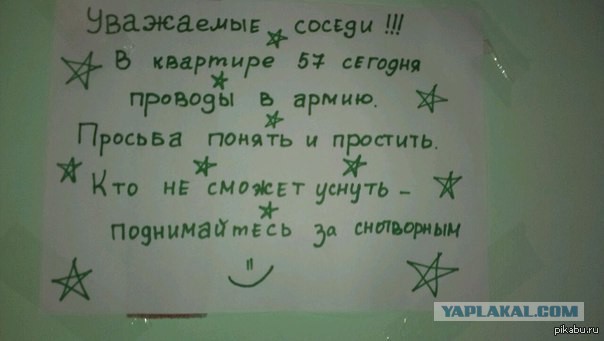 Уважаемые соседи !!!
В квартире 57 сегодня
проводы в армию.
Просьба понять и простить.
Кто не сможет уснуть –
поднимайтесь за снотворным
YAPLAKAL.COM
pikabu.ru